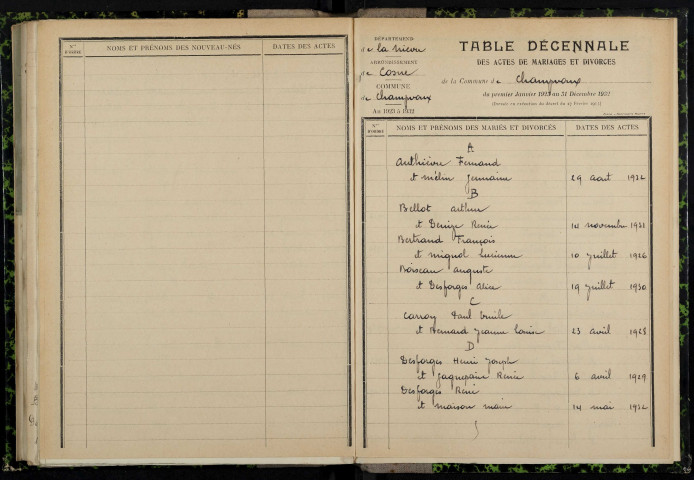 N° D'ORDRE NOMS ET PRÉNOMS DES NOUVEAU-NÉS DATES DES ACTES
DÉPARTEMENT
de la Nièvre
ARRONDISSEMENT
de Cosne
COMMUNE
de Champvoux
An 1923 à 1932
TABLE DÉCENNALE
DES ACTES DE MARIAGES ET DIVORCES
de la Commune de Champvoux
du premier Janvier 1923 au 31 Décembre 1932
N° D'ORDRE NOMS ET PRÉNOMS DES MARIÉS ET DIVORCÉS DATES DES ACTES
A
Fernand
et Mélin Germaine 29 août 1932
B
Bellot Arthur
et Denize Renée 14 novembre 1931
Bertrand François
et Mignot Lucienne 10 juillet 1926
Boiseau Auguste
et Desforges Alice 19 juillet 1930
C
Carroy Paul Emile
et Bernard Jeanne Louise 23 avril 1928
D
Desforges Henri Joseph
et Renée 6 avril 1929
Desforges René
et Maison Marie 14 mai 1932